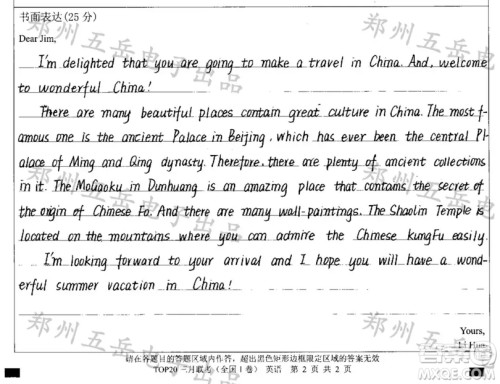 书面表达(25 分)
Dear Jim,
I'm delighted that you are going to make a travel in China. And, welcome
to wonderful China!
There are many beautiful places contain great culture in China. The most f-
amous one is the ancient Palace in Beijing, which has ever been the central Pl-
alace of Ming and Qing dynasty. Therefore, there are plenty of ancient collections
in it. The MoGaoku in Dunhuang is an amazing place that contains the secret of
the origin of Chinese Fo. And there are many wall-paintings. The Shaolin Temple is
located on the mountains where you can admire the Chinese kungFu easily.
I'm looking forward to your arrival and I hope you will have a wond-
erful summer vacation in China!
Yours,
Li Hua
请在各题目的答题区域内作答，超出黑色矩形边框限定区域的答案无效
TOP20 三月联考（全国 I 卷） 英语 第 2 页 共 2 页
郑州五岳电子出品
郑州五岳电子出品
郑州五岳电子出品
郑州五岳电子出品